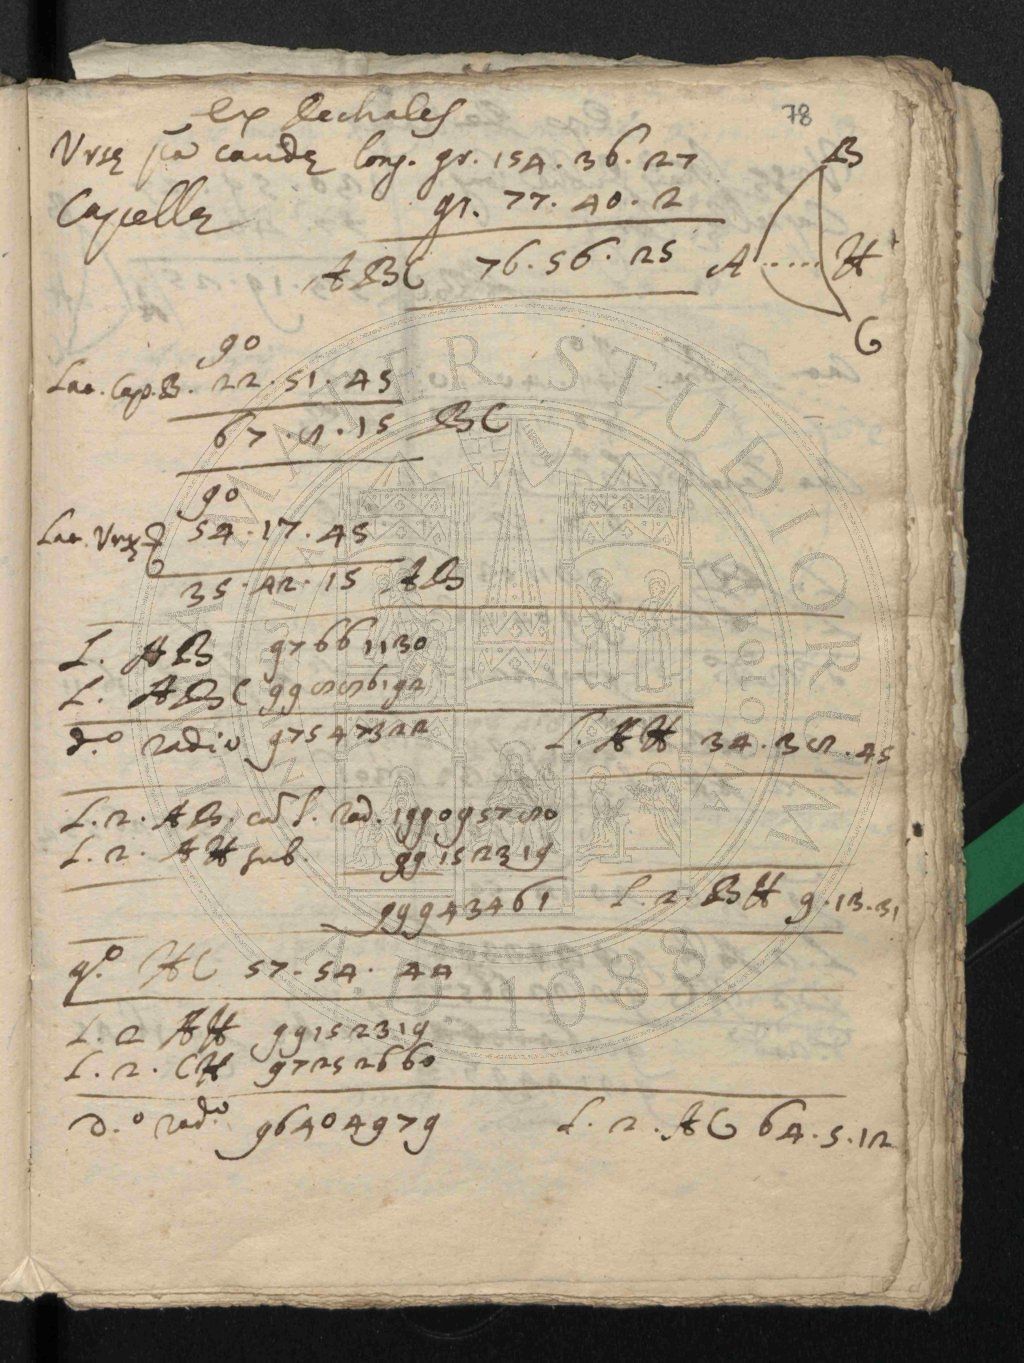 ex Dechales
78
Ursę caudę long. gr. 154. 36. 27
Capellę gr. 77. 40. 2
ABC 76. 56. 25
B
A H
C
90
Lat. Cap. B. 22. 51. 45
67. 8. 15 BC
90
Lat. Ursę 54. 17. 45
35. 42. 15 AB
L. AB 97661130
L. ABC 99886192
d.º radio 97547322 L. AH 34. 38. 45
L. 2. AB. cū L. rad. 199095780
L. 2. AH sub. 99152319
99943461 L. 2. BH 9. 13. 31
g.º HC 57. 54. 44
L. 2 AH 99152319
L. 2. CH 97252660
D.º rad.º 96404979 L. 2. AC 64. 5. 12
ALMA MATER STUDIORUM
A.D. 1088